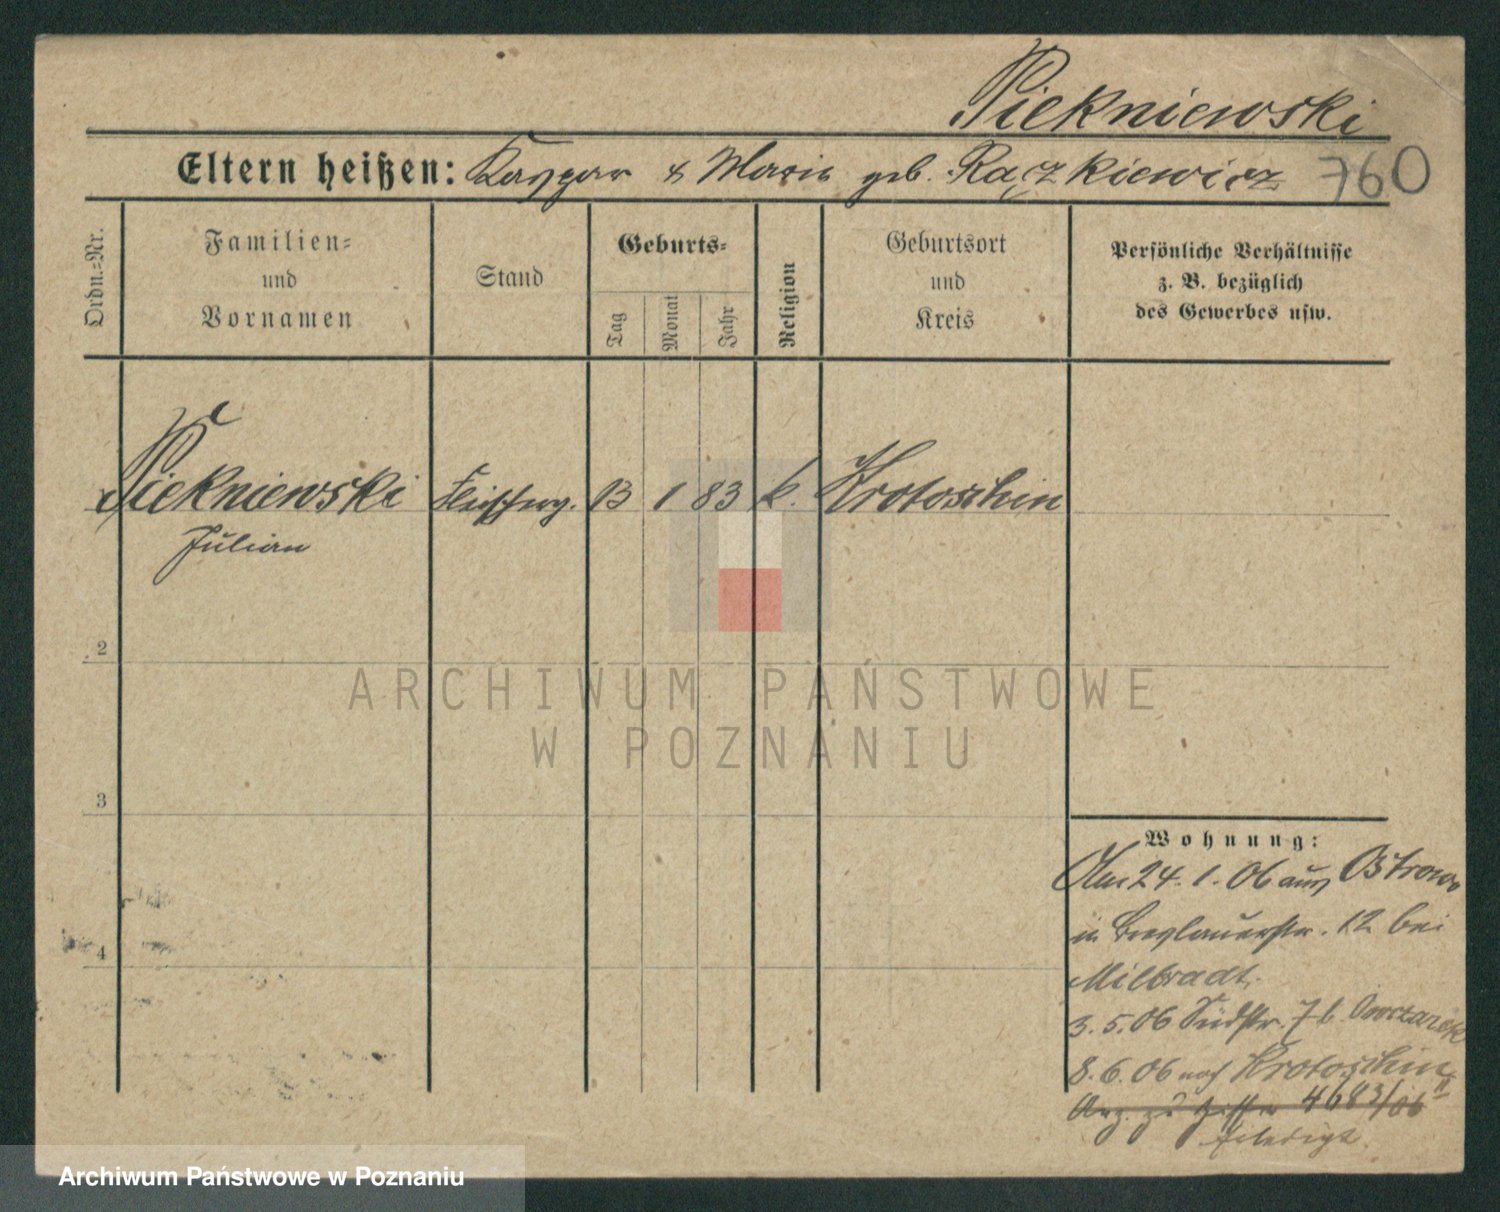 Piekniewski
Eltern heißen: Kaspar & Maria geb. Raczkiewicz 760
Ordn.=Nr.
Familien=
und
Vornamen
Stand
Geburts=
Tag
Monat
Jahr
Religion
Geburtsort
und
Kreis
Persönliche Verhältnisse
z. B. bezüglich
des Gewerbes usw.
Piekniewski Fleischerg. 13 1 83 k. Krotoschin
Julian
2
3
4
Wohnung:
Am 24. 1. 06 aus Ostrowo
in Breslauerstr. 12 bei
Milbradt.
3. 5. 06 Südstr. 7 b.
8. 6. 06 nach Krotoschin
Anz. zu Ziffer 4683/06 II
Erledigt.
ARCHIWUM PAŃSTWOWE
W POZNANIU
Archiwum Państwowe w Poznaniu